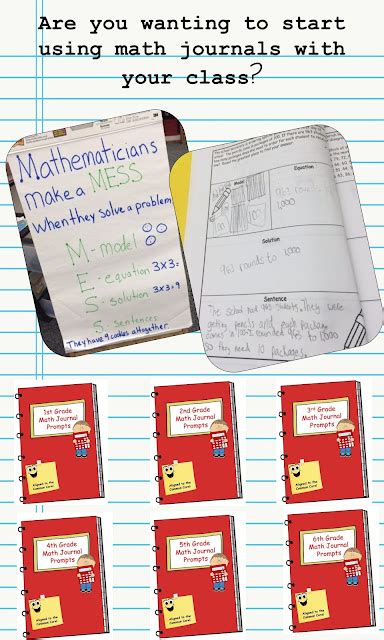 Are you wanting to start
using math journals with
your class?
Mathematicians
make a MESS
When they solve a problem
M- model
E- equation 3x3=
S- solution 3x3=9
S sentences
They have 9 cookies altogether.
Model
Equation
963 rounds
1000
100
Solution
963 rounds to 1000
Sentence
The school had 963 students. They were
getting pencils and each package
rounded 963 to 1000
so they need 10 packages.
1st Grade
Math Journal
Prompts
Aligned to the
Common Core!
2nd Grade
Math Journal
Prompts
Aligned to the
Common Core!
3rd Grade
Math Journal
Prompts
Aligned to the
Common Core!
4th Grade
Math Journal
Prompts
Aligned to the
Common Core!
5th Grade
Math Journal
Prompts
Aligned to the
Common Core!
6th Grade
Math Journal
Prompts
Aligned to the
Common Core!